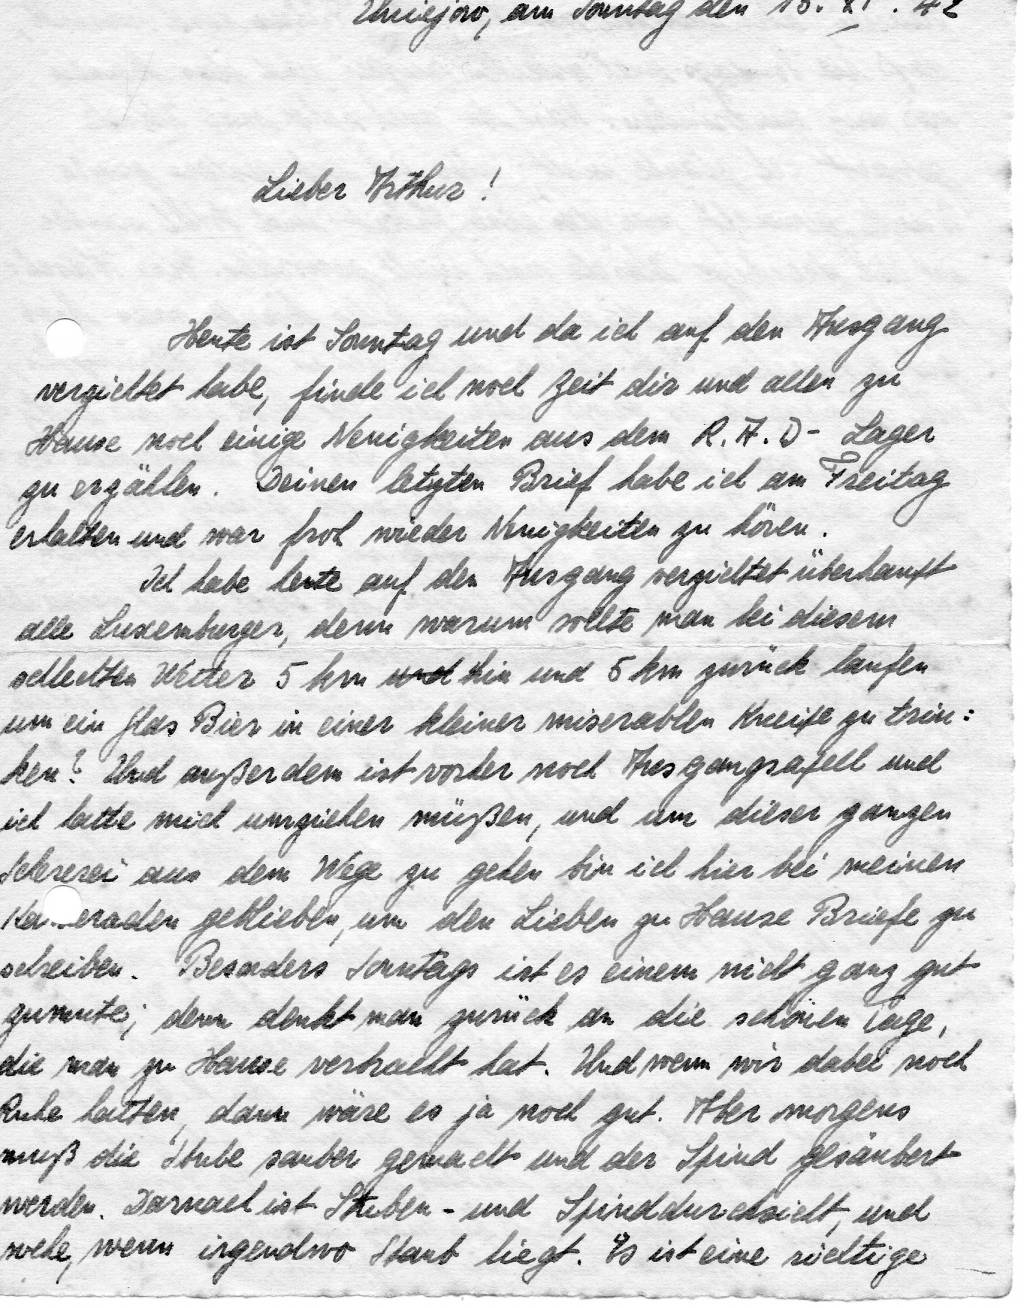 Uniejow, am Sonntag den 15. XI. 42
Lieber Arthur!
Heute ist Sonntag und da ich auf den Ausgang
verzichtet habe, finde ich noch Zeit dir und allen zu
Hause noch einige Neuigkeiten aus dem R.A.D- Lager
zu erzählen. Deinen letzten Brief habe ich am Freitag
erhalten und war froh wieder Neuigkeiten zu hören.
Ich habe heute auf den Ausgang verzichtet überhaupt
alle Luxemburger, denn warum sollte man bei diesem
schlechten Wetter 5 km und hin und 5 km zurück laufen
um ein Glas Bier in einer kleiner miserablen Kneipe zu trin:
ken? Und außerdem ist vorher noch Ausgangsapell und
ich hätte mich umziehen müßen, und um dieser ganzen
Schererei aus dem Wege zu gehen bin ich hier bei meinen
Ka..eraden geblieben, um den Lieben zu Hause Briefe zu
schreiben. Besonders Sonntags ist es einem nicht ganz gut
zumute; denn denkt man zurück an die schönen Tage,
die man zu Hause verbracht hat. Und wenn wir dabei noch
Ruhe hätten, dann wäre es ja noch gut. Aber morgens
muß die Stube sauber gemacht und der Spind gesäubert
werden. Darnach ist Stuben- und Spinddurchsicht, und
wehe, wenn irgendwo Staub liegt. Es ist eine richtige